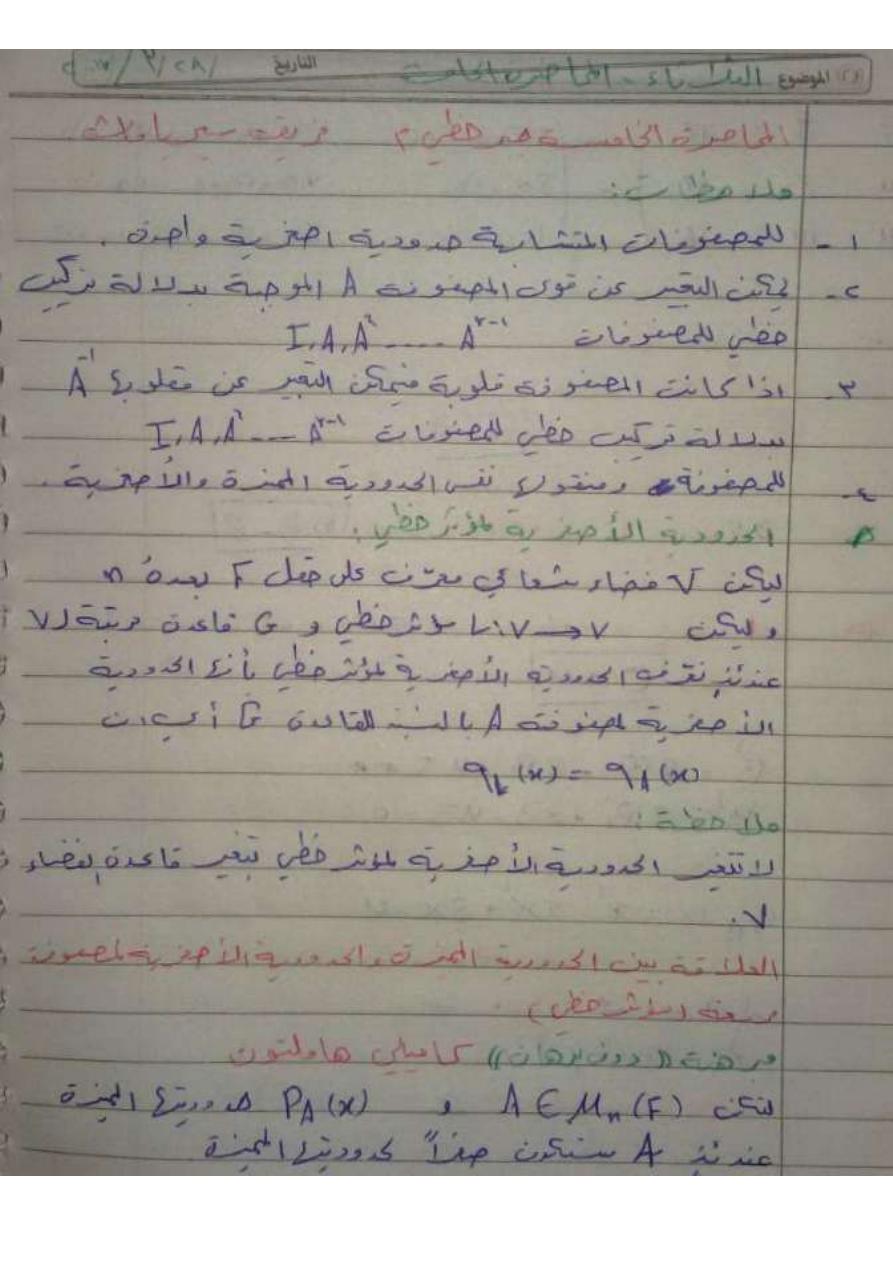 الموضوع الثلاثاء - المحاضرة الخامسة التاريخ ٢٨/٣/
المحاضرة الخامسة جبر خطي ٢
ملاحظات:
١- للمصفوفات المتشابهة حدودية اصغرية واحدة.
٢- يمكن التعبير عن قوى المصفوفة A الموجبة بدلالة تركيب
خطي للمصفوفات I, A, A² ..... Aʳ⁻¹
٣- اذا كانت المصفوفة قلوبة فيمكن التعبير عن مقلوبها A⁻¹
بدلالة تركيب خطي للمصفوفات I, A, A² --- Aʳ⁻¹
٤- للمصفوفة ومنقولها نفس الحدودية المميزة والأصغرية.
الحدودية الأصغرية لمؤثر خطي:
ليكن V فضاء شعاعي معرّف على حقل F بعده n
وليكن L: V → V مؤثر خطي و G قاعدة مرتبة لـ V
عندئذٍ نعرف الحدودية الأصغرية لمؤثر خطي بأنها الحدودية
الأصغرية لمصفوفته A بالنسبة للقاعدة G أي ان
q_L(x) = q_A(x)
ملاحظة:
لا تتغير الحدودية الأصغرية لمؤثر خطي بتغير قاعدة لفضاء
V.
العلاقة بين الحدودية المميزة والحدودية الأصغرية لمصفوفة
مربعة (مؤثر خطي)
مبرهنة ((دون برهان)) كاميلي هاملتون
لتكن A ∈ Mₙ(F) و P_A(x) حدوديتها المميزة
عندئذٍ A ستكون صفراً لحدوديتها المميزة